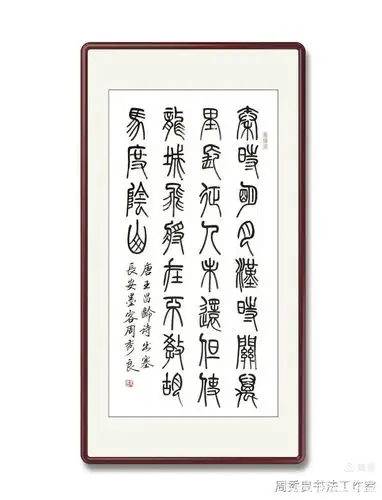 秦時明月漢時關萬
里長征人未還但使
龍城飛將在不教胡
馬度陰山
唐王昌齡詩出塞
長安墨客周秀良
周秀良书法工作室